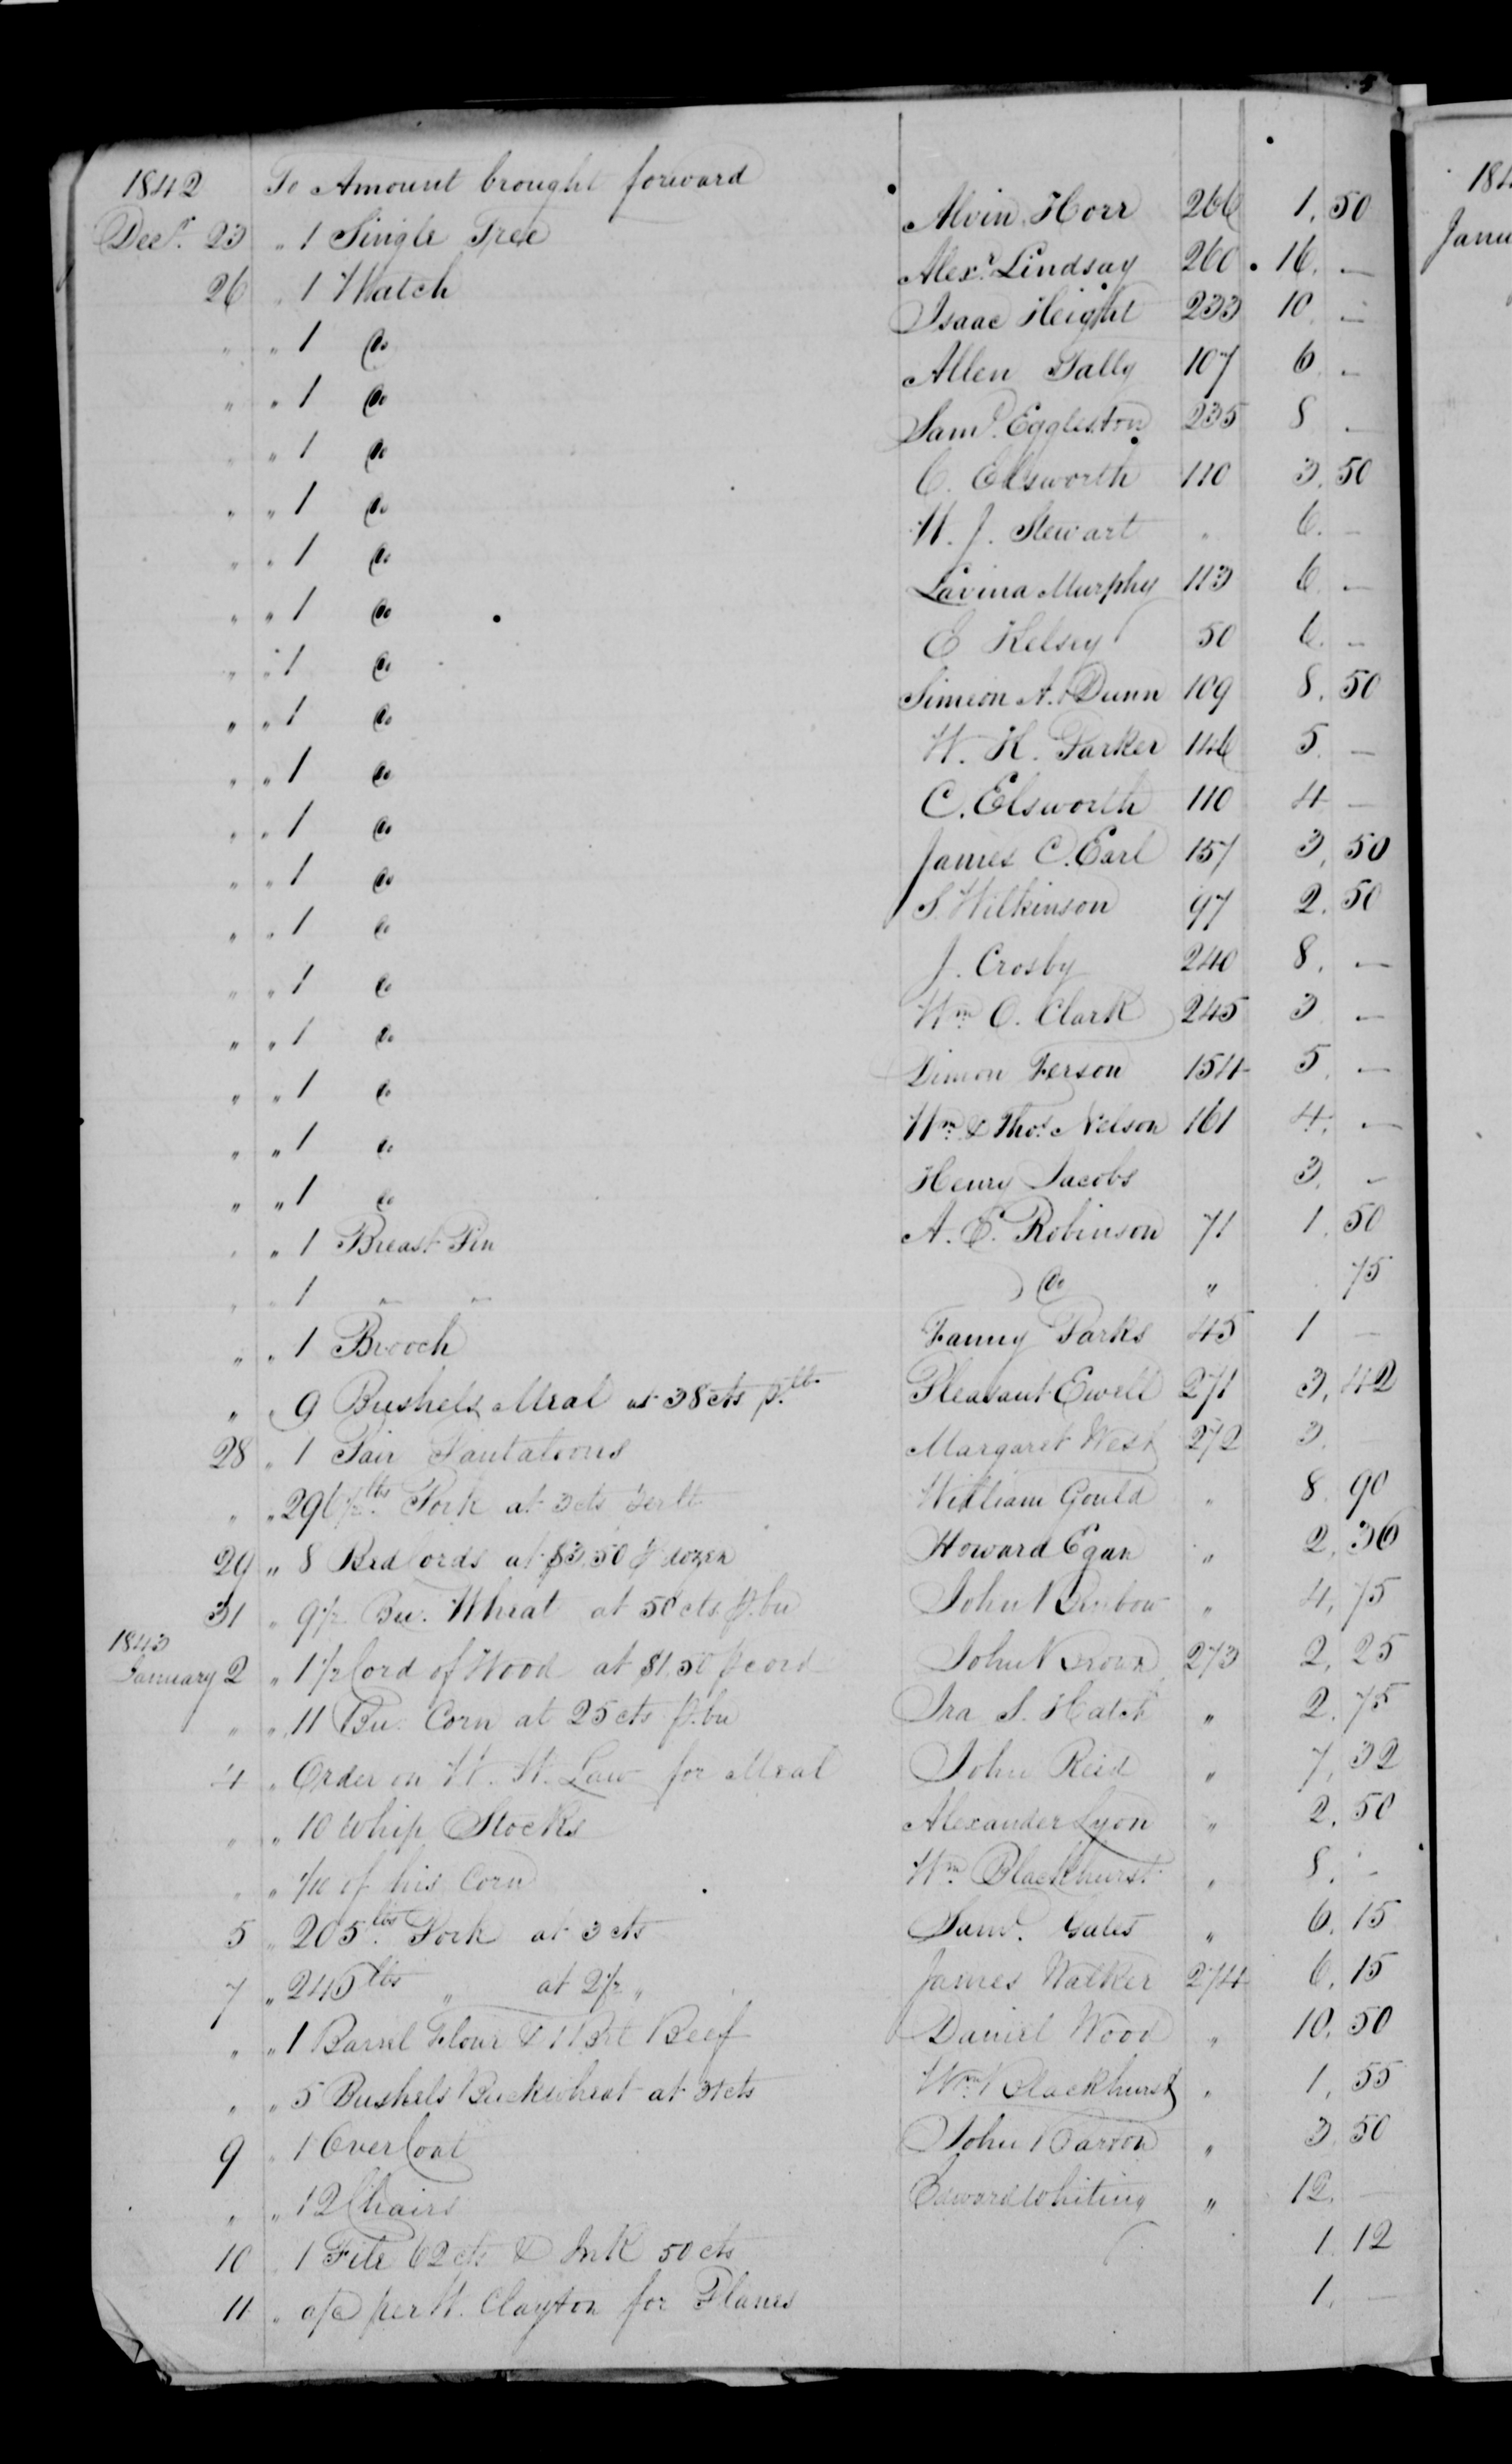 1842 To Amount brought forward
Decr. 23 " 1 Single Tree Alvin Horr 266 1. 50
26 " 1 Watch Alexr. Lindsay 260 16. —
" " 1 Do Isaac Height 233 10. —
" " 1 Do Allen Tally 107 6. —
" " 1 Do Saml. Eggleston 235 8 —
" " 1 Do C. Elsworth 110 3. 50
" " 1 Do W. J. Stewart " 6. —
" " 1 Do Lavina Murphy 113 6. —
" " 1 Do E Kelsey 50 6. —
" " 1 Do Simeon A. Dunn 109 8. 50
" " 1 Do W. H. Parker 146 5. —
" " 1 Do C. Elsworth 110 4 —
" " 1 Do James C. Earl 157 3, 50
" " 1 Do S. Wilkinson 97 2. 50
" " 1 Do J. Crosby 240 8. —
" " 1 Do Wm. O. Clark 245 3 —
" " 1 Do Dimon Ferson 154 5. —
" " 1 Do Wm. & Thos. Nelson 161 4. —
" " 1 Do Henry Jacobs 3. —
" " 1 Breast Pin A. E. Robinson 71 1. 50
" " 1 " " Do " 75
" " 1 Brooch Fanny Parks 45 1 —
" " 9 Bushels Meal at 38 cts p. Pleasant Ewell 271 3, 42
28 " 1 Pair Pantaloons Margaret West 272 3. —
" " 296 1/2 lbs Pork at 3 cts per lb William Gould " 8. 90
29 " 8 Bed Cords at $3.50 p dozen Howard Egan " 2, 36
31 " 9 1/2 Bu. Wheat at 50 cts p. bu John Benbow " 4, 75
1843
January 2 " 1 1/2 Cord of Wood at $1.50 p cord John Brown 273 2, 25
" " 11 Bu. Corn at 25 cts p. bu Ira S. Hatch " 2. 75
4 " Order on W. W. Law for Meal John Reid " 7, 32
" " 10 Whip Stocks Alexander Lyon " 2. 50
" " 1/10 of his Corn Wm. Blackhurst " 8. —
5 " 205 lbs. Pork at 3 cts Saml. Gates " 6. 15
7 " 245 lbs " at 2 1/2 " James Walker 274 6. 15
" " 1 Barrel Flour & 1 Brl Beef Daniel Wood " 10. 50
" " 5 Bushels Buckwheat at 31 cts Wm. Blackhurst " 1, 55
9 " 1 Over Coat John Barton " 3. 50
" " 12 Chairs Edward Whiting " 12. —
10 " 1 File 62 cts & Ink 50 cts 1. 12
11 " o/c per W. Clayton for Planes 1. —
184
Janu